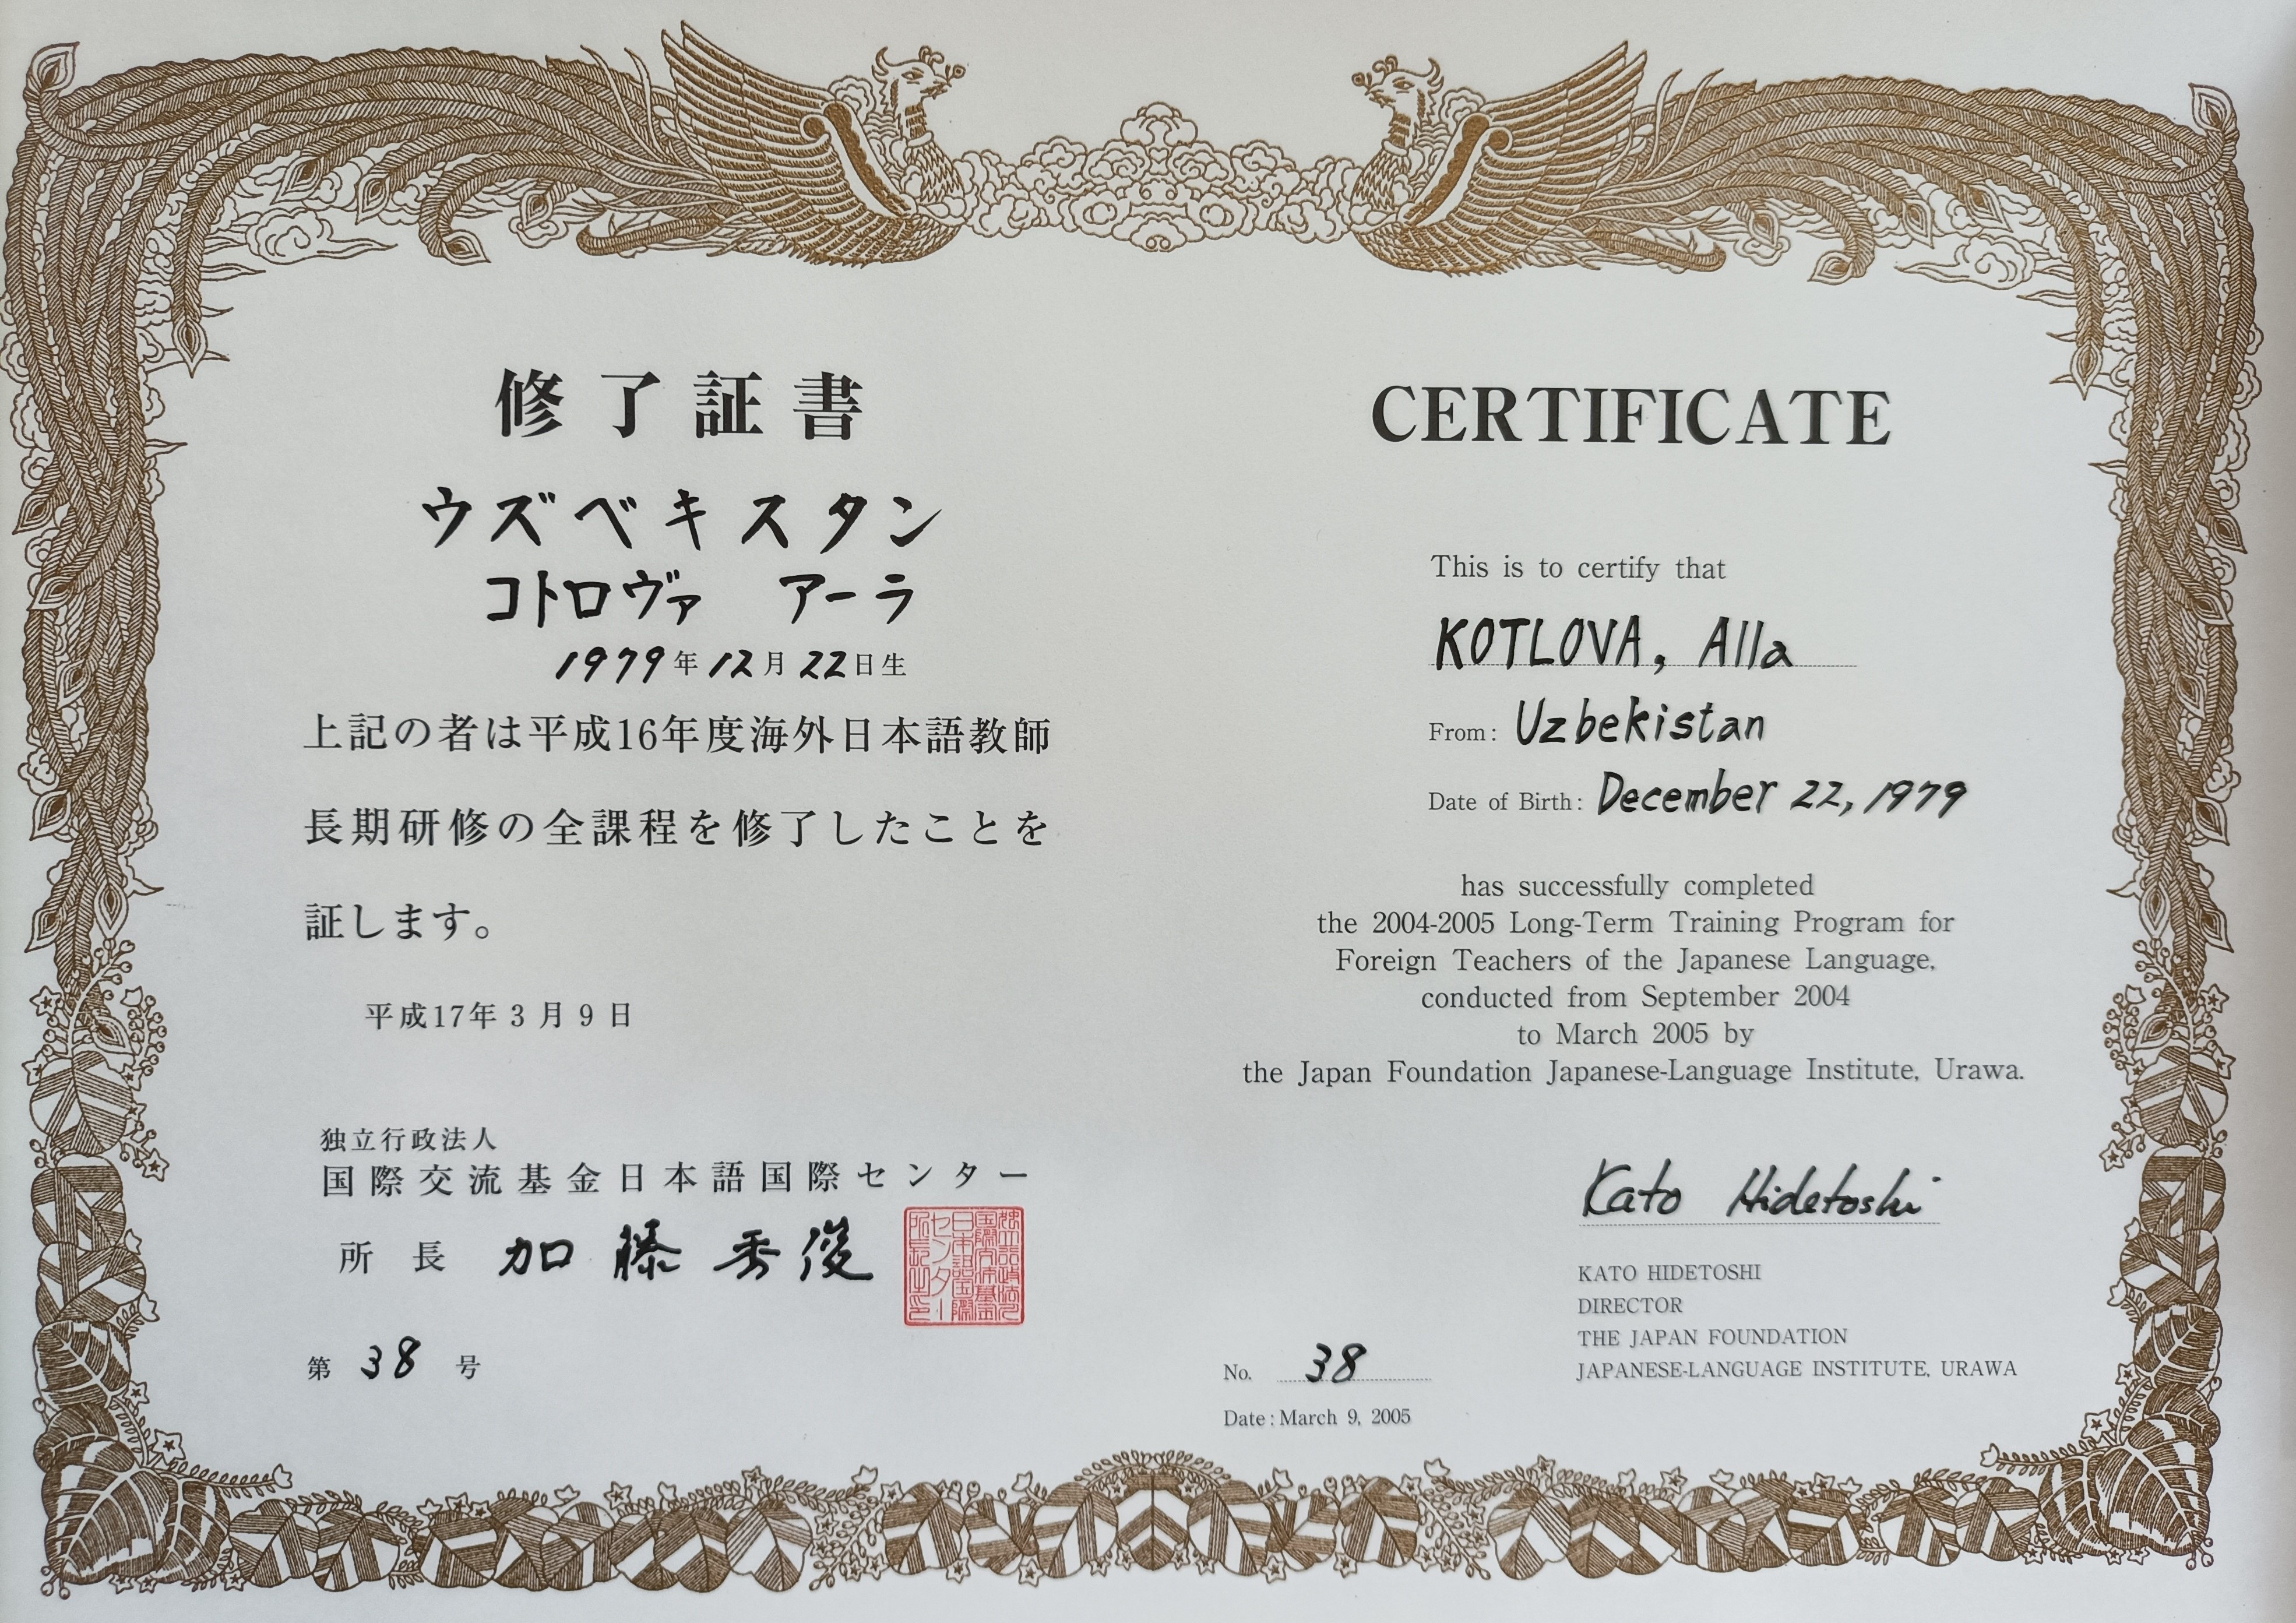 修了証書
ウズベキスタン
コトロヴァ アーラ
1979年12月22日生
上記の者は平成16年度海外日本語教師
長期研修の全課程を修了したことを
証します。
平成17年3月9日
独立行政法人
国際交流基金日本語国際センター
所長 加藤秀俊
独立行政法人
国際交流基金
日本語国際
センター
所長之印
第 38 号
CERTIFICATE
This is to certify that
KOTLOVA, Alla
From: Uzbekistan
Date of Birth: December 22, 1979
has successfully completed
the 2004-2005 Long-Term Training Program for
Foreign Teachers of the Japanese Language,
conducted from September 2004
to March 2005 by
the Japan Foundation Japanese-Language Institute, Urawa.
Kato Hidetoshi
KATO HIDETOSHI
DIRECTOR
THE JAPAN FOUNDATION
JAPANESE-LANGUAGE INSTITUTE, URAWA
No. 38
Date: March 9, 2005